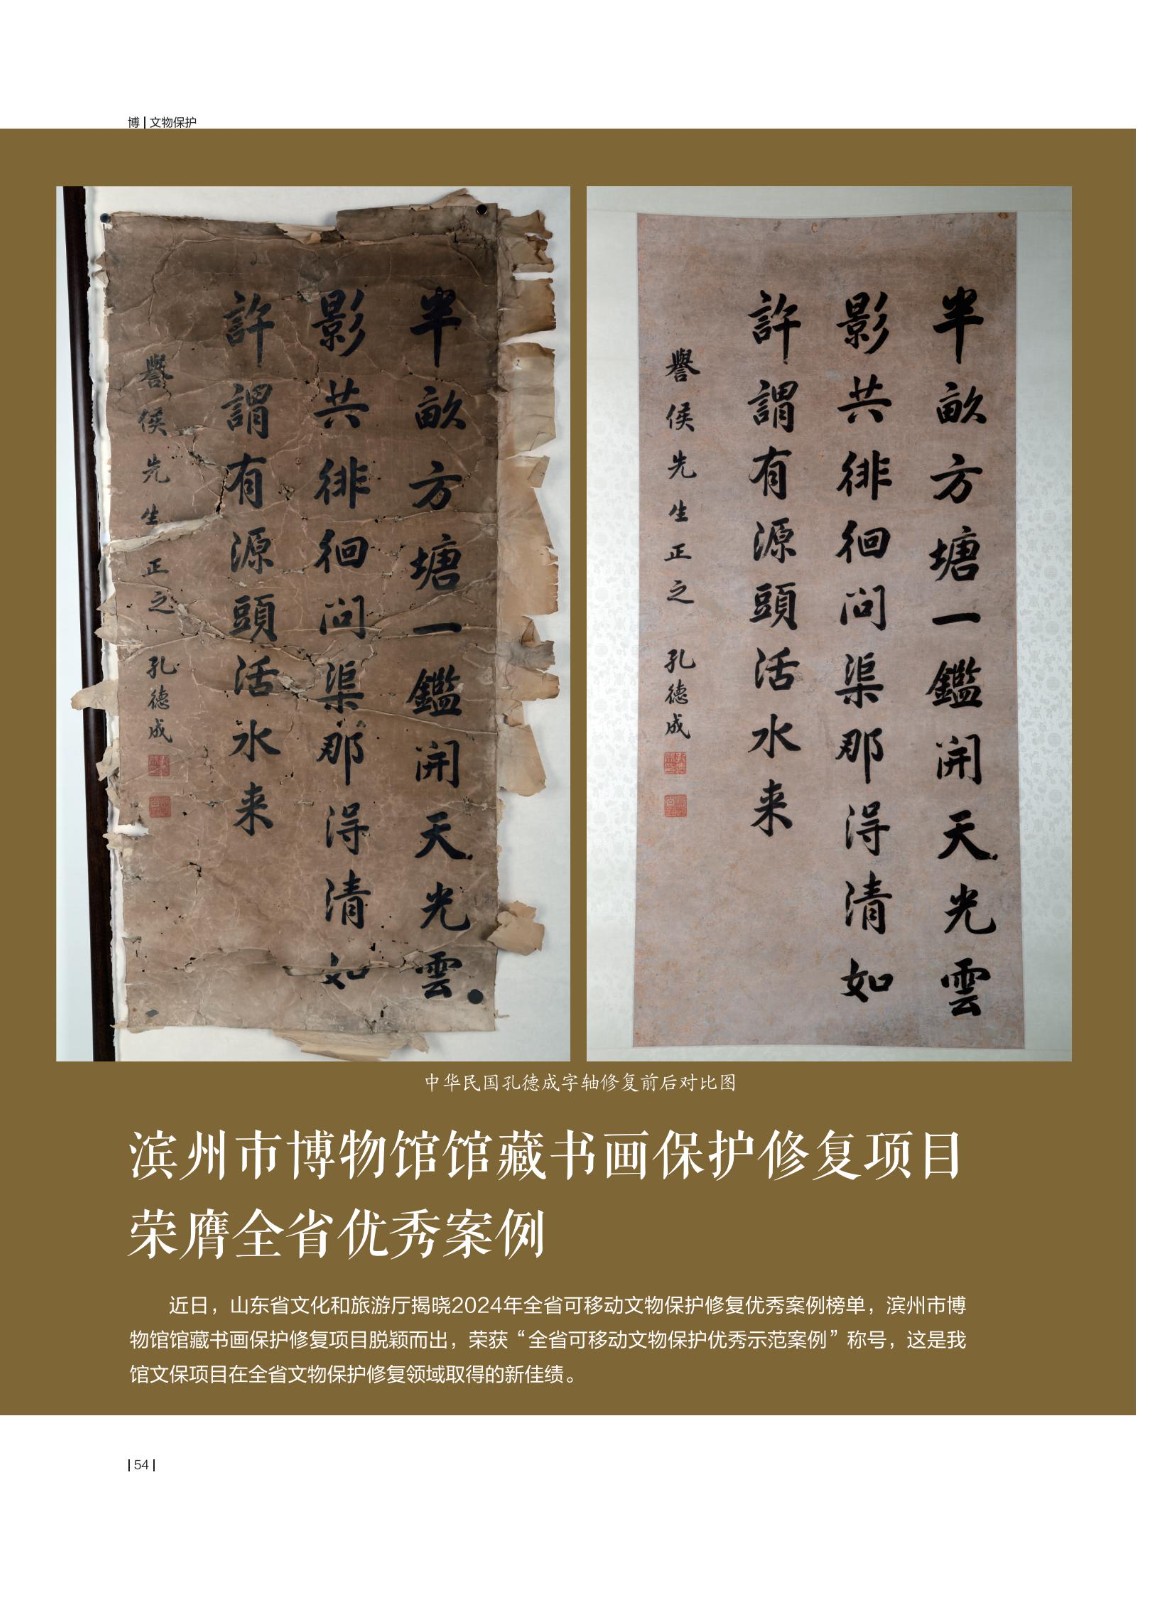 博 | 文物保护
半畝方塘一鑑開天光雲
影共徘徊問渠那得清如
許謂有源頭活水来
譽侯先生正之 孔德成
半畝方塘一鑑開天光雲
影共徘徊問渠那得清如
許謂有源頭活水来
譽侯先生正之 孔德成
中华民国孔德成字轴修复前后对比图
滨州市博物馆馆藏书画保护修复项目
荣膺全省优秀案例
近日，山东省文化和旅游厅揭晓2024年全省可移动文物保护修复优秀案例榜单，滨州市博
物馆馆藏书画保护修复项目脱颖而出，荣获“全省可移动文物保护优秀示范案例”称号，这是我
馆文保项目在全省文物保护修复领域取得的新佳绩。
| 54 |